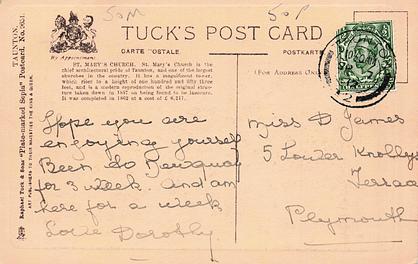 50M
50P
TAUNTON.
Raphael Tuck & Sons' "Plate-marked Sepia" Postcard, No.
ART PUBLISHERS TO THEIR MAJESTIES THE KING & QUEEN.
By Appointment
TUCK'S POST CARD
CARTE POSTALE.
POSTKARTE
(FOR ADDRESS ONLY
ST. MARY'S CHURCH. St. Mary's Church is the
chief architectural pride of Taunton, and one of the largest
churches in the country. It has a magnificent tower,
which rises to a height of one hundred and fifty three
feet, and is a modern reproduction of the original structure
taken down in 1857 on being found to be insecure.
It was completed in 1862 at a cost of £ 6,247.
Hope you are
enjoying yourself
Been to Newquay
for 3 week. And am
here for a week
Love Dorothy.
Miss D James
5 Lower Knollys
Terrace
Plymouth